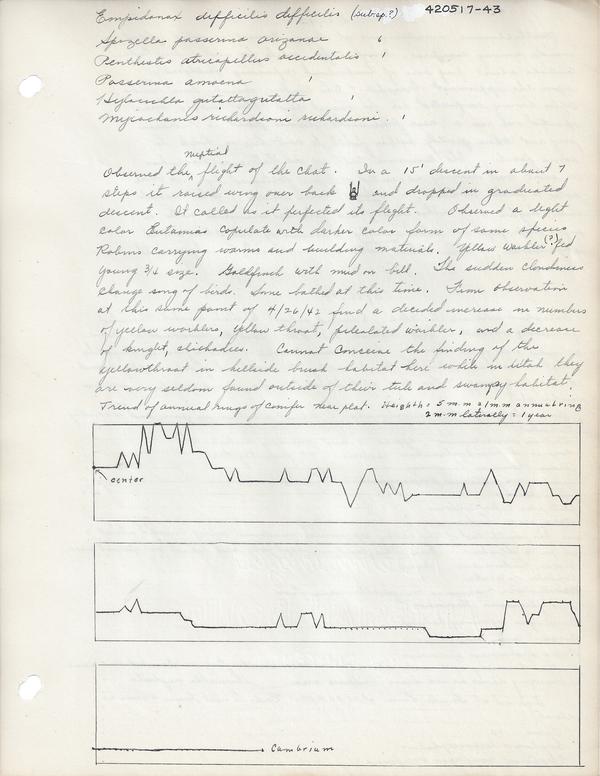 420517-43
Empidonax difficilis difficilis (subsp.?)
Spizella passerina arizonae 6
Penthestes atricapillus occidentalis 1
Passerina amoena 1
Hylocichla guttata guttata 1
Myiochanes richardsoni richardsoni. 1
nuptial
Observed the flight of the Chat. In a 15' descent in about 7
steps it raised wing over back and dropped in graduated
descent. It called as it perfected its flight. Observed a light
color Eutamias copulate with darker color form of same species
Robins carrying worms and building materials. Yellow Warbler (?) fed
young 3/4 size. Goldfinch with mud on bill. The sudden cloudiness
change song of birds. Some bathed at this time. From observation
at this same point of 4/26/42 find a decided increase in numbers
of yellow warblers, yellow throat, pileolated warbler, and a decrease
of knight, chickadees. Cannot conceive the finding of the
yellowthroat in hillside brush habitat here while in Utah they
are very seldom found outside of their tule and swampy habitat.
Trend of annual rings of conifer near plat. Heighth = 5 m.m = 1 m.m annual ring
2 m.m laterally = 1 year
center
Cambrium